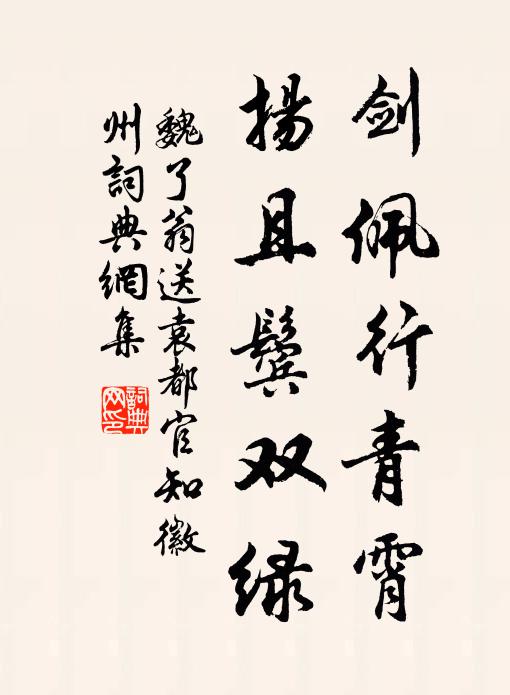 剑佩行青霄
揚且鬓双绿
魏了翁送袁都官知徽
州詞典網集
詞典
网印